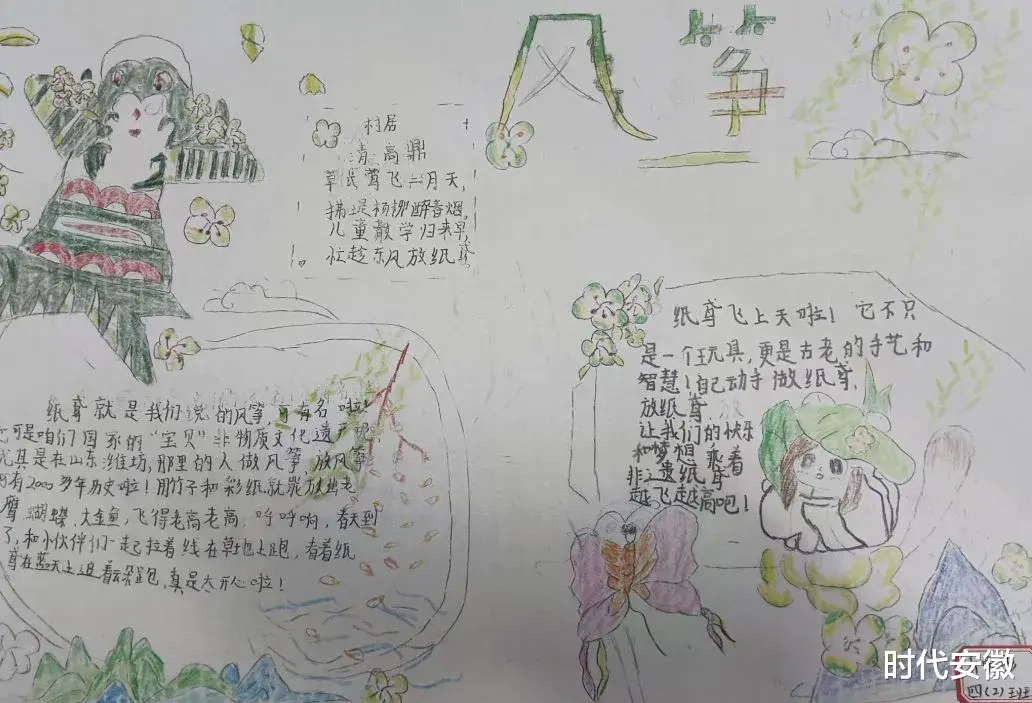 风筝
村居
清 高鼎
草长莺飞二月天,
拂堤杨柳醉春烟,
儿童散学归来早,
忙趁东风放纸鸢
纸鸢就是我们说的风筝,可有名啦!
可是咱们国家的“宝贝”非物质文化遗产呢,
尤其是在山东潍坊,那里的人做风筝,放风筝
有2000多年历史啦!用竹子和彩纸就能放出老
鹰 蝴蝶、大金鱼,飞得老高老高,呼呼响,春天到
了,和小伙伴们一起拉着线在草地上跑,看着纸
鸢在蓝天上追着云朵跑,真是太开心啦!
纸鸢飞上天啦!它不只
是一个玩具,更是古老的手艺和
智慧!自己动手做纸鸢,
放纸鸢,
让我们的快乐
和梦想乘着
非遗纸鸢
越飞越高吧!
四(2)班
时代安徽